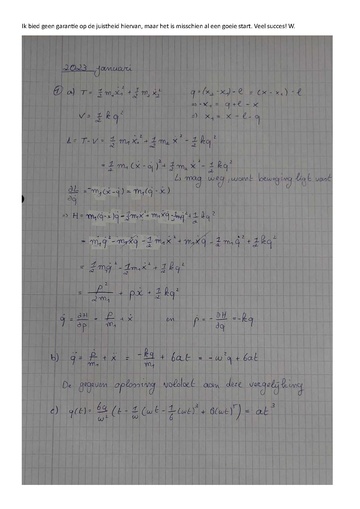 Ik bied geen garantie op de juistheid hiervan, maar het is misschien al een goeie start. Veel succes! W.
2023 januari
① a) T = 1/2 m₁ẋ₁² + 1/2 m₂ẋ₂²
q = (x₂ - x₁) - l = (x - x₁) - l
⇒ x₁ = x - l - q
V = 1/2 k q²
L = T - V = 1/2 m₁ẋ₁² + 1/2 m₂ẋ² - 1/2 kq²
= 1/2 m₁(ẋ - q̇)² + 1/2 m₂ẋ² - 1/2 kq²
↳ mag weg, want beweging ligt vast
∂L/∂q̇ = -m₁(ẋ - q̇) = m₁(q̇ - ẋ)
= m₁q̇² - m₁ẋq̇ - 1/2 m₁ẋ² + m₁ẋq̇ - 1/2 m₁q̇² + 1/2 kq²
= 1/2 m₁q̇² - 1/2 m₁ẋ² + 1/2 kq²
= p²/2m₁ + pẋ + 1/2 kq²
q̇ = ∂H/∂p = p/m₁ + ẋ en ṗ = -∂H/∂q = -kq
b) q̈ = ṗ/m₁ + ẍ = -kq/m₁ + 6at = -ω²q + 6at
De gegeven oplossing voldoet aan deze vergelijking
c) q(t) = 6a/ω² (t - 1/ω (ωt - 1/6 (ωt)³ + O(ωt)⁵) = at³